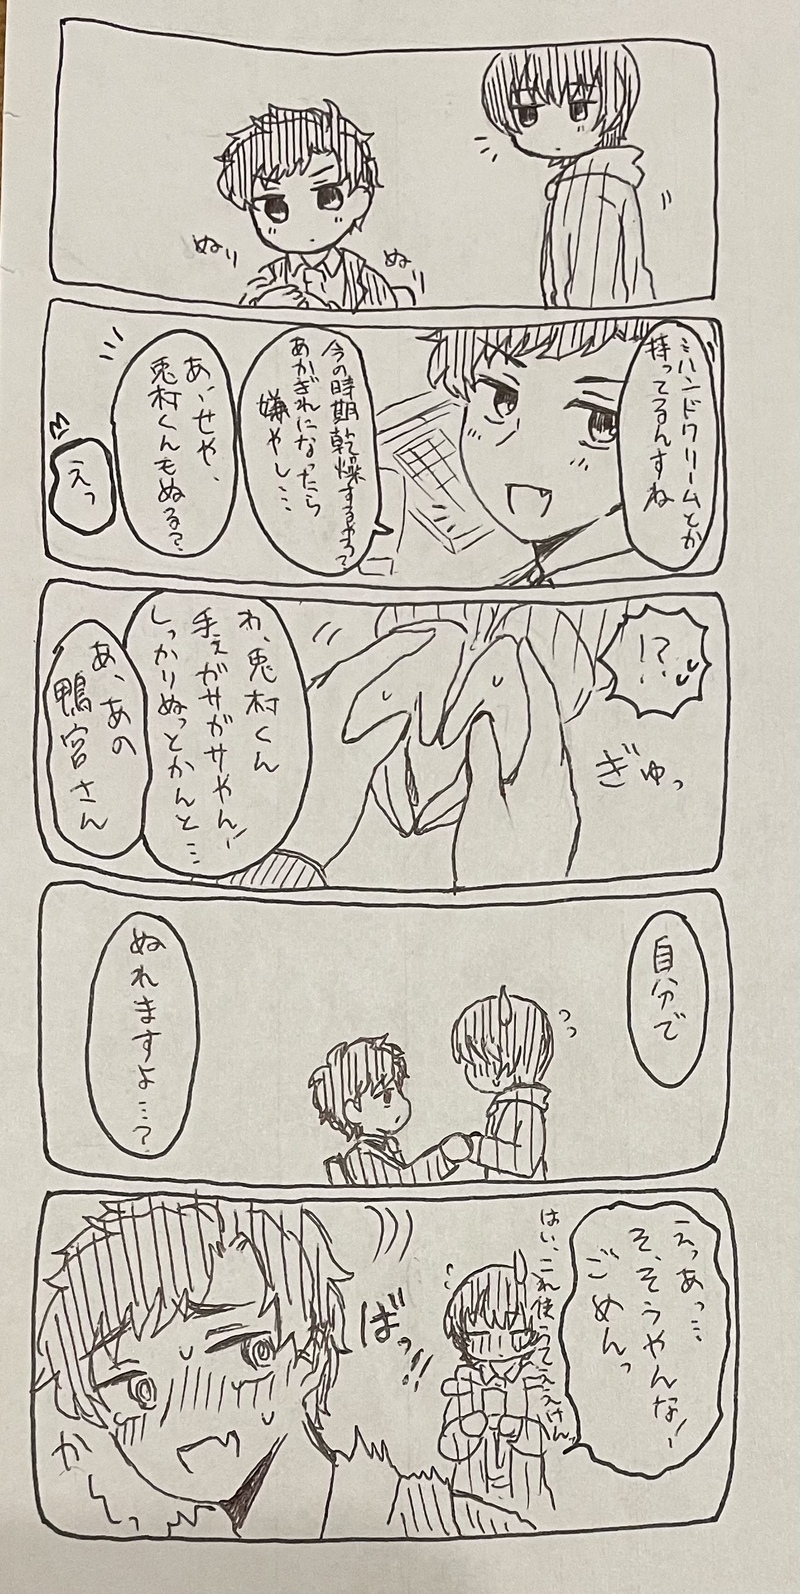 ぬり
ぬり
ハンドクリームとか
持ってるんすね
今の時期乾燥するやろ?
あかぎれになったら
嫌やし…
あ、せや、
兎村くんもぬる?
えっ
!?
ぎゅっ
わ、兎村くん
手えガサガサやん!
しっかりぬっとかんと…
あ、あの
鴨宮さん
自分で
ぬれますよ…?
えっあっ…
そ、そうやんな!
ごめんっ
はい、これ使ってええけん
ばっ!!
かぁ